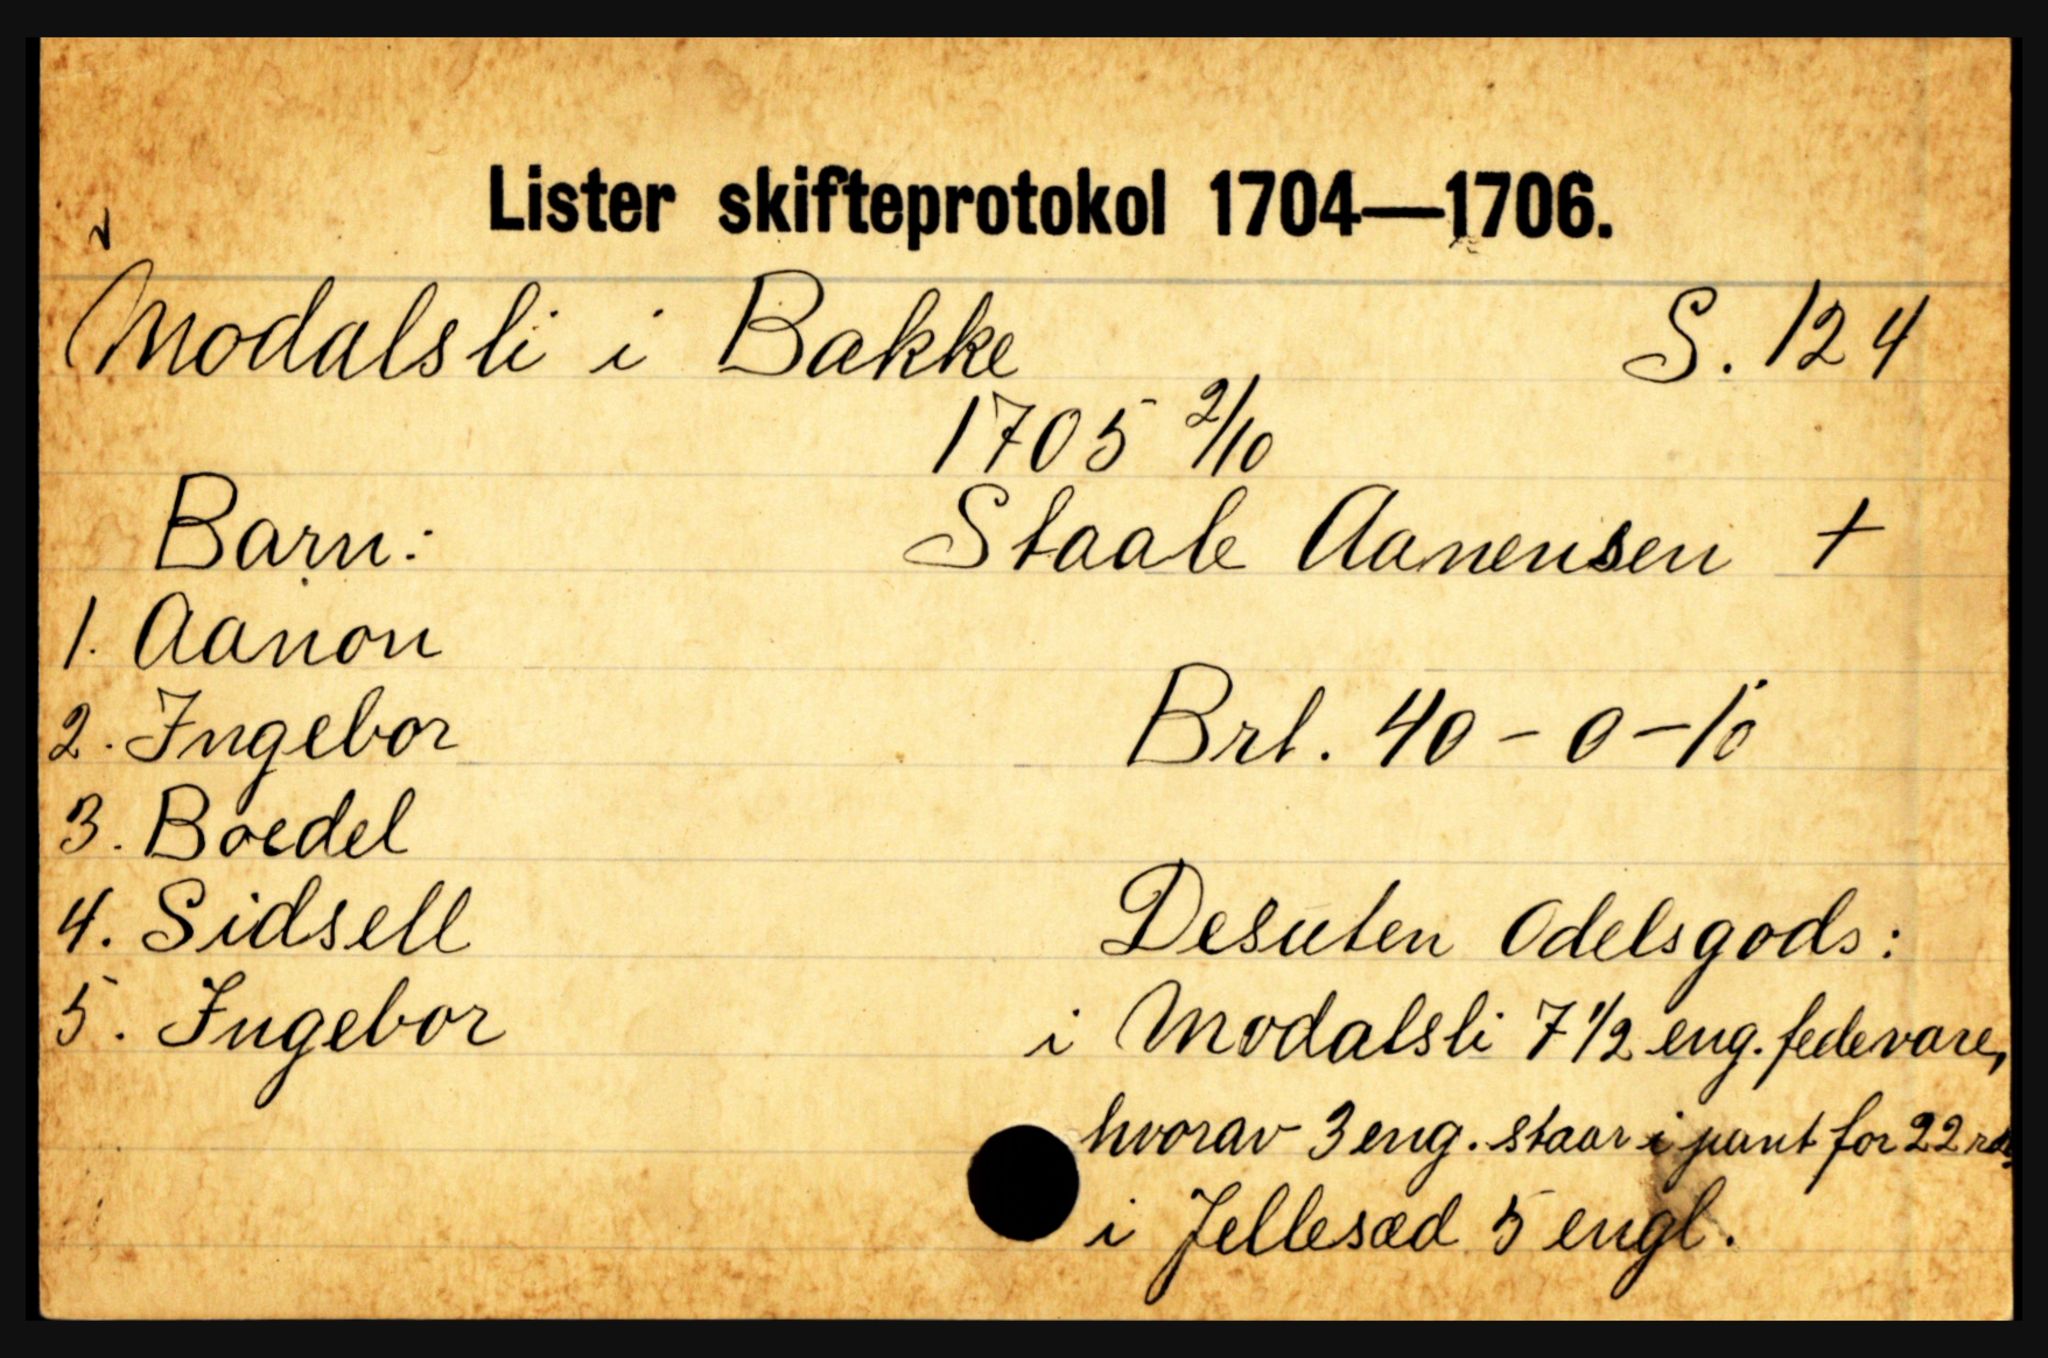 Lister skifteprotokol 1704—1706.
Modalsli i Bakke S. 124
1705 2/10
Barn: Staale Aanensen +
1. Aanon
2. Ingebor Brt. 40 - 0 - 10
3. Boedel
4. Sidsell Desuten Odelsgods:
5. Ingebor i Modalsli 7 1/2 eng. fedevare,
hvorav 3 eng. staar i pant for 22 rd.
i Jellesæd 5 engl.